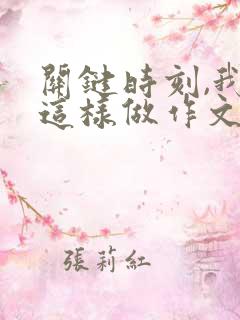 關鍵時刻,我
這樣做作文
張莉紅